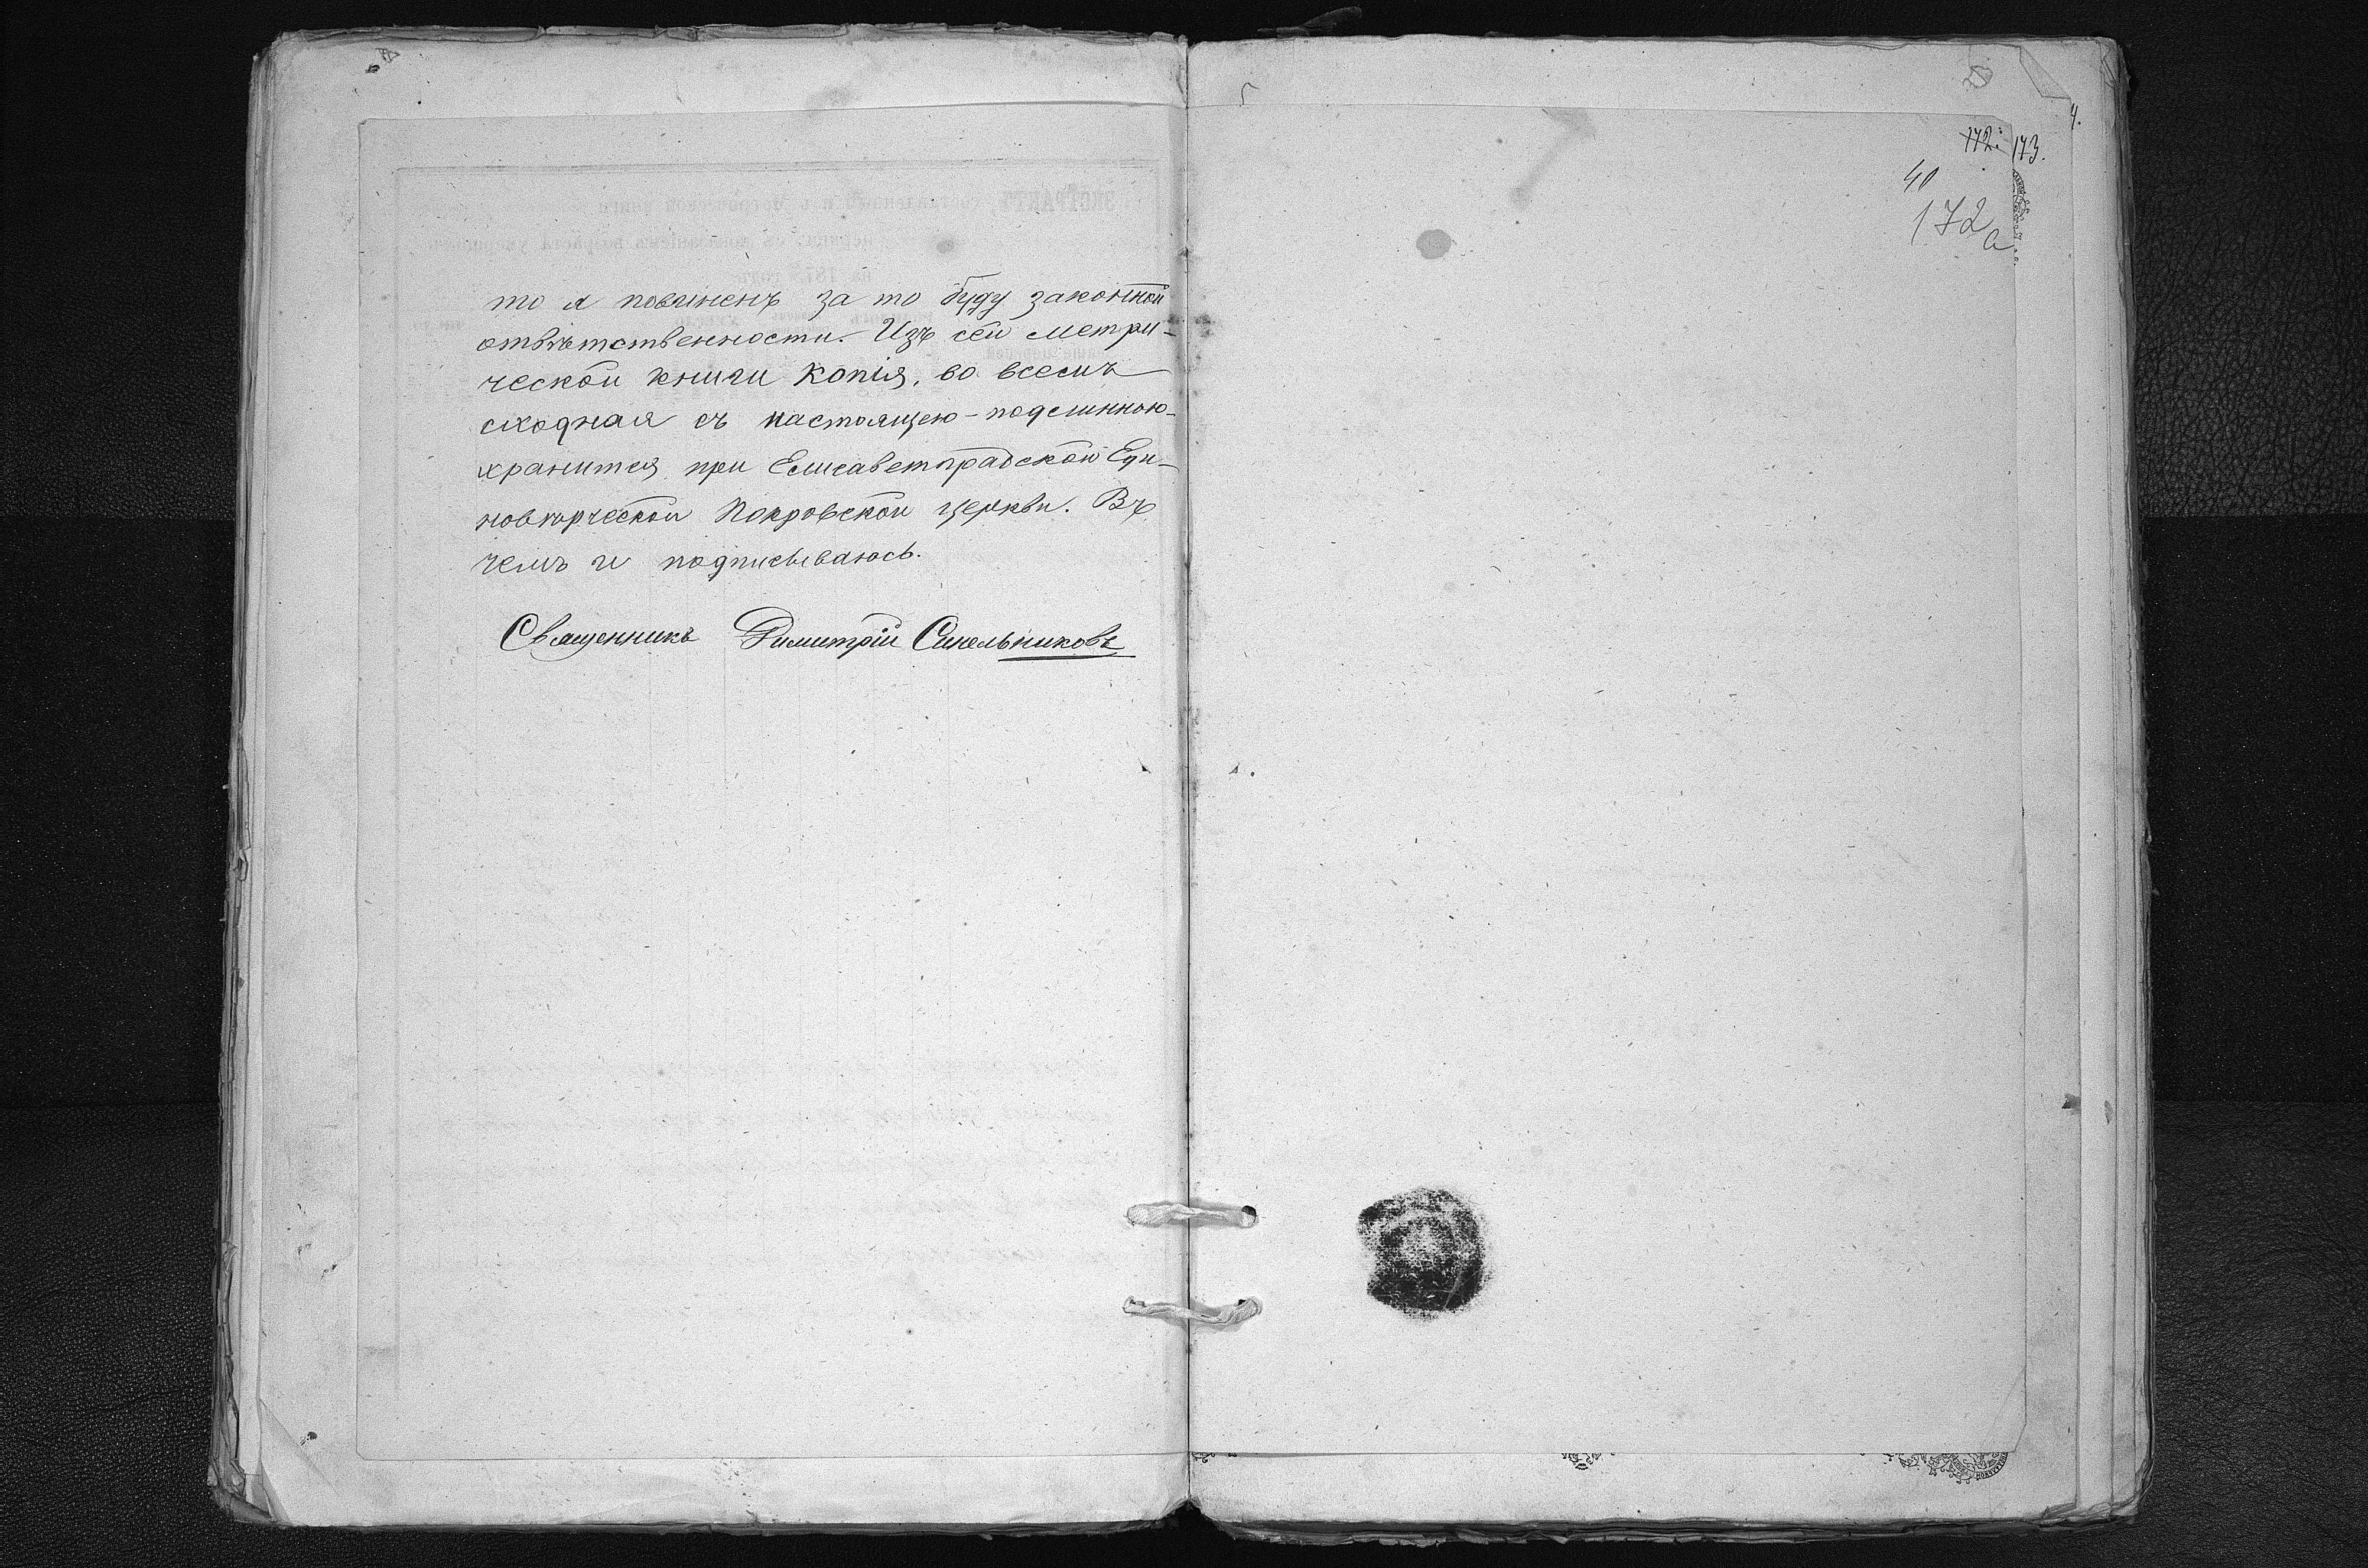 то я повиненъ за то буду законной
отвѣтственности. Изъ сей метри-
ческой книги копія, во всемъ
сходная съ настоящею-подлинною-
хранится при Елисаветградской Еди-
новѣрческой Покровской церкви. Въ
чемъ и подписываюсь.
Священникъ Димитрій Синельниковъ
4.
172. 173.
40
172 а